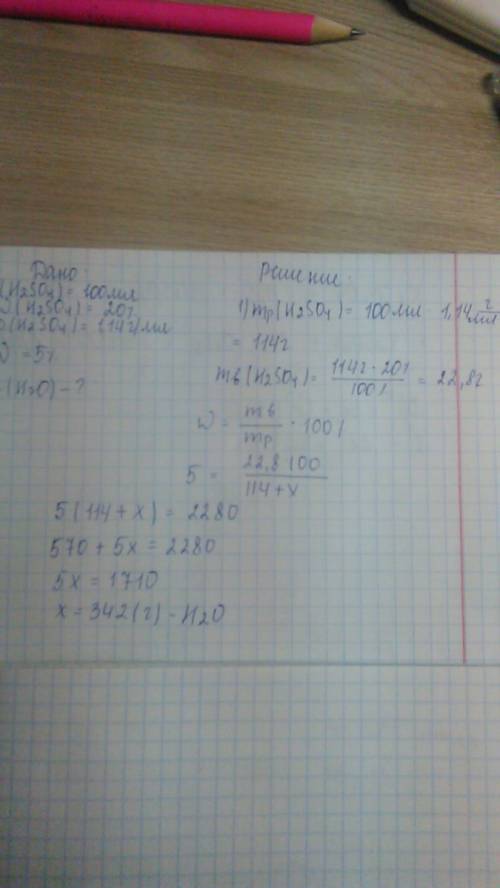 Дано:
(H2SO4) = 100мл
(H2SO4) = 20%
(H2SO4) = 1,14г/мл
= 5%
(H2O) - ?
Решение:
1) mр (H2SO4) = 100мл 1,14 г/мл
= 114г
mв (H2SO4) = 114г · 20% / 100% = 22,8г
W = mв / mр · 100%
5 = 22,8 100 / 114 + x
5(114 + x) = 2280
570 + 5x = 2280
5x = 1710
x = 342 (г) - H2O